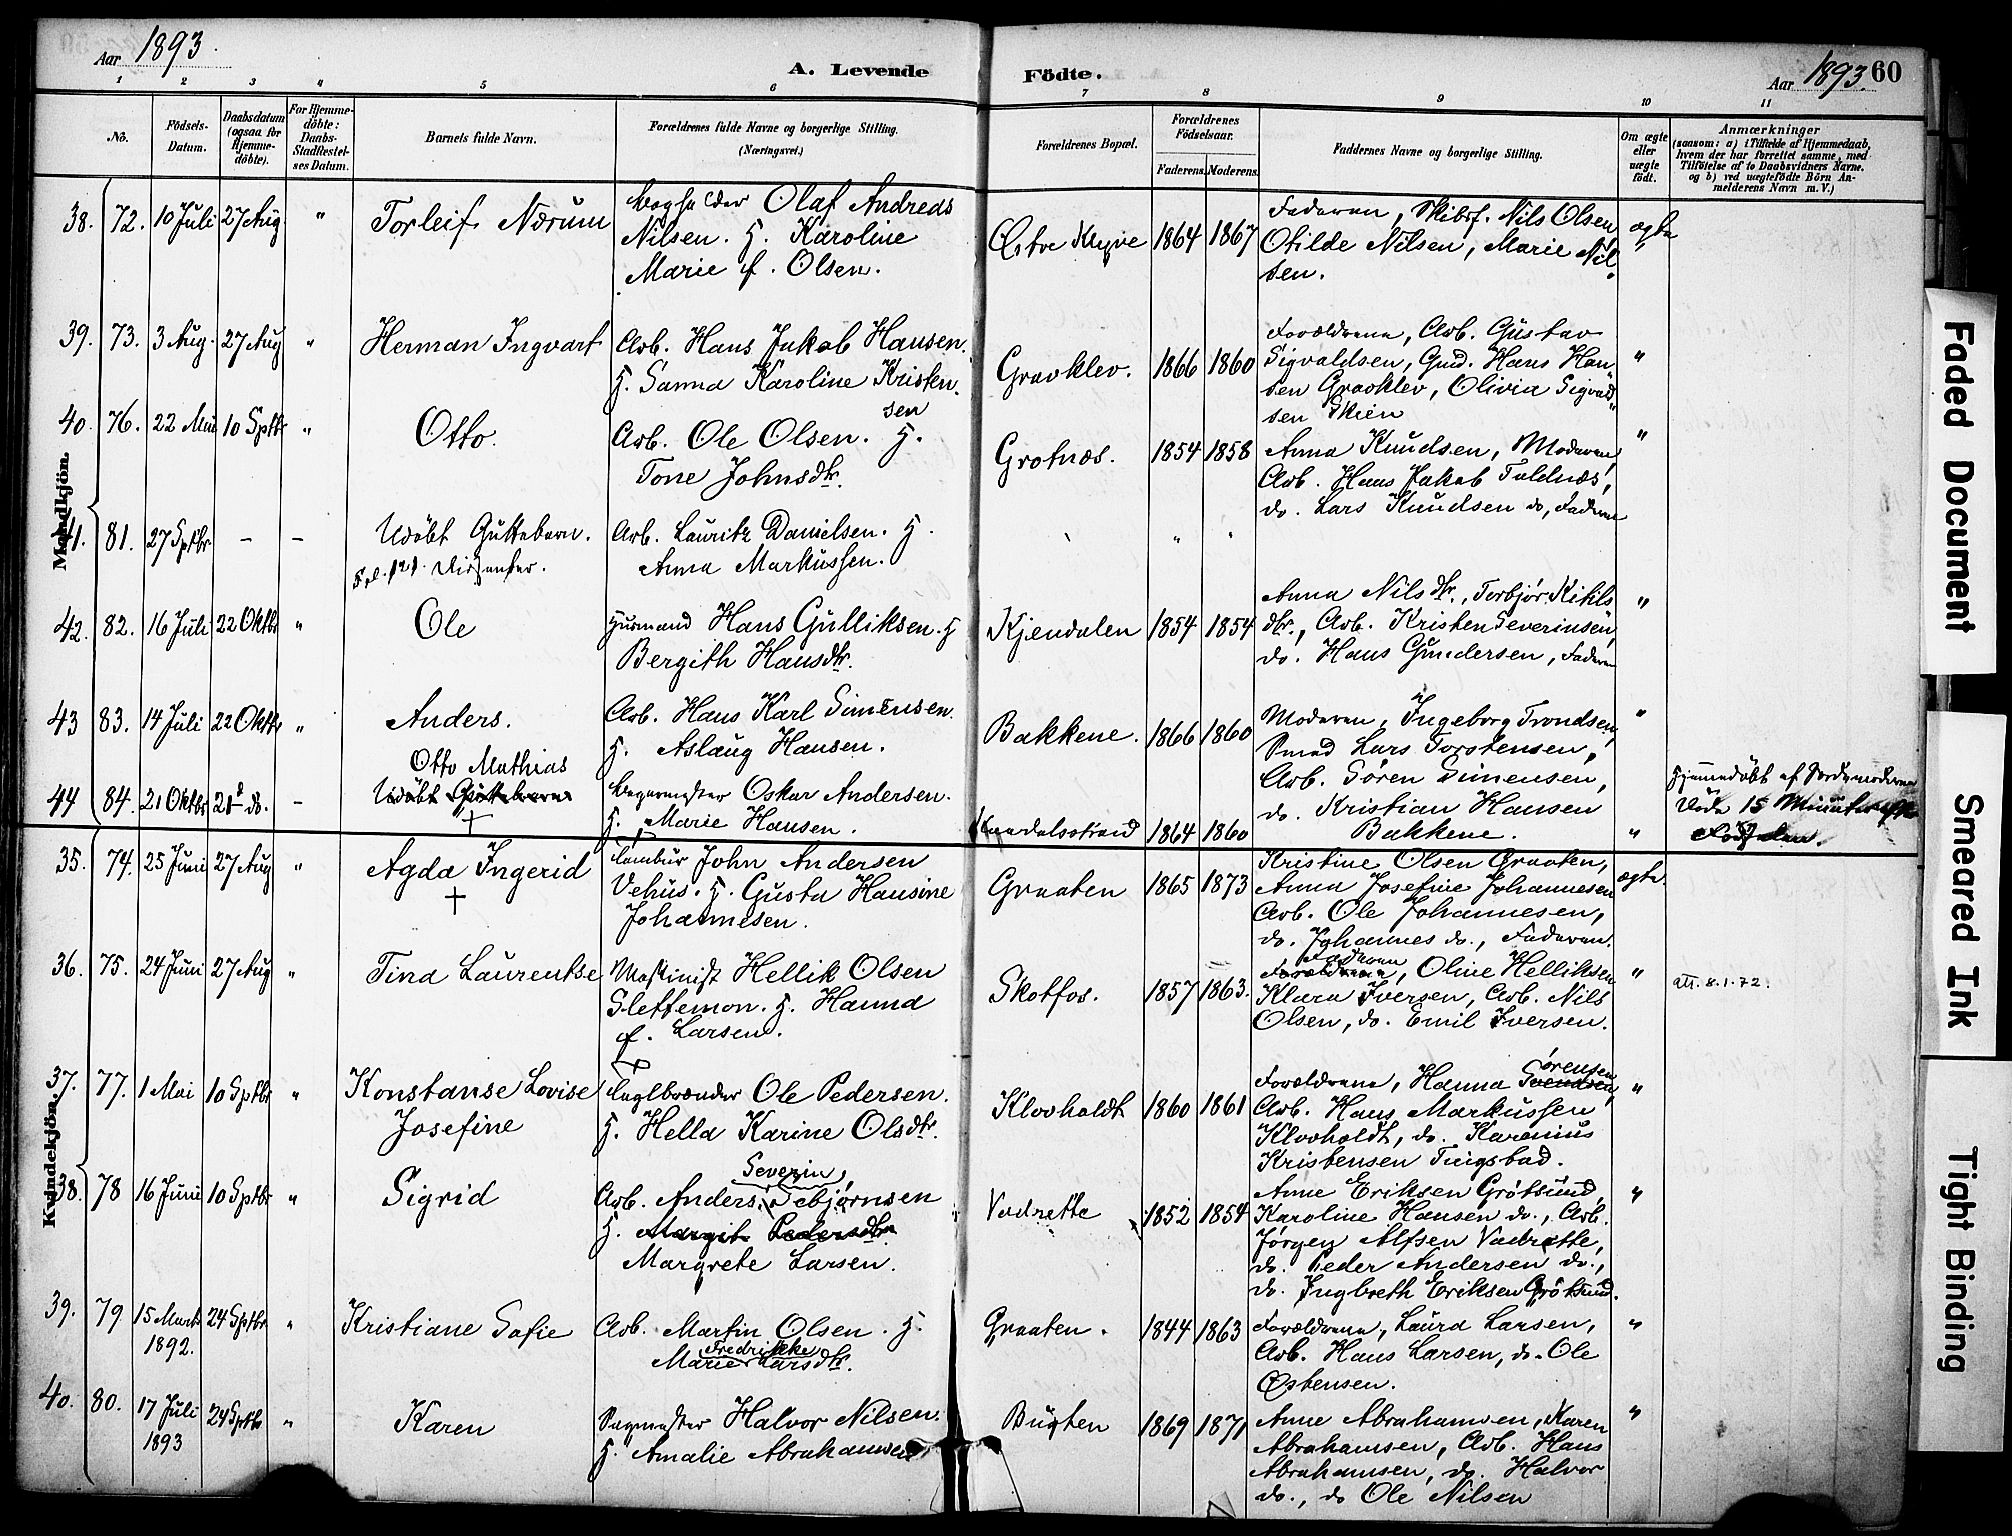 Aar 1893.
A. Levende Födte.
Aar 1893. 60
1 2 3 4 5 6 7 8 9 10 11
No. Födsels-Datum. Daabsdatum (ogsaa for Hjemme-döbte). For Hjemme-döbte: Daabs-Stadfæstelses Datum. Barnets fulde Navn. Forældrenes fulde Navne og borgerlige Stilling. (Næringsvei.) Forældrenes Bopæl. Forældrenes Födselsaar. Faderens. Moderens. Faddernes Navne og borgerlige Stilling. Om ægte eller uægte födt. Anmærkninger (saasom: a) i Tilfælde af Hjemmedaab, hvem der har forrettet samme, med Tilföielse af to Daabsvidners Navne, og b) ved uægtefödte Börn Anmelderens Navn m. V.)
Mandkjön.
38. 72. 10 Juli 27 Aug. " Torleif Nærum
Olaf Andreas
Nilsen. H. Karoline
Marie f. Olsen.
1864 1867
Faderen, Skibsf. Nils Olsen,
Otilde Nilsen, Marie Nil
sen.
ægte
39. 73. 3 Aug. 27 Aug " Herman Ingvart
Arb. Hans Jakob Hansen.
H. Sanna Karoline Kristen
sen
Gravklev. 1866 1860
Forældrene, Arb. Gustav
Sigvaldsen, Gmd. Hans Han
sen Gravklev, Olivia Sigvald
sen Skien
"
40. 76. 22 Mai 10 Sptbr " Otto.
Arb. Ole Olsen. H.
Tone Johnsdtr.
Grotnæs. 1854 1858
Anna Knudsen, Moderen,
Arb. Hans Jakob
do. Lars Knudsen do, Faderen
"
41. 81. 27 Sptbr – – Udöbt Guttebarn.
Dissenter.
Arb. Lauritz Danielsen. H.
Anna Markussen.
42. 82. 16 Juli 22 Oktbr " Ole
Husmand Hans Gulliksen. H
Bergith Hansdtr.
Kjendalen 1854 1854
Anna Nilsdtr., Torbjør Kittils
dtr., Arb. Kristen Severinsen,
do. Hans Gundersen, Faderen
"
43 83. 14 Juli 22 Oktbr " Anders.
Arb. Hans Karl Simensen.
H. Aslaug Hansen.
Bakkene. 1866 1860
Moderen, Ingeborg Trondsen,
Smed Lars Torstensen,
Arb. Søren Simensen,
do. Kristian Hansen
Bakkene.
"
44 84. 21 Oktbr 21 do. – Otto Mathias
Udöbt Guttebarn
+
Oskar Andersen.
H. Marie Hansen.
1864 1860
"
Hjemmedöbt af Jordemoderen
Döde 15 Minuter efter
Födselen.
Kvindekjön.
35. 74. 25 Juni 27 Aug " Agda Ingerid
+
John Andersen
Vehus. H. Gusta Hansine
Johannesen.
Graaten 1865 1873
Kristine Olsen Graaten,
Anna Josefine Johannesen
Arb. Ole Johannesen,
do. Johannes do., Faderen.
ægte.
36. 75. 24 Juni 27 Aug " Tina Laurentse
Maskinist Hellik Olsen
Slettemon. H. Hanna
f. Larsen.
Skotfos. 1857 1863.
Faderen
Forældrene, Oline Helliksen
Klara Iversen, Arb. Nils
Olsen, do. Emil Iversen.
"
att. 8.1.72.
37. 77. 1 Mai 10 Sptbr " Konstanse Lovise
Josefine
Teglbrænder Ole Pedersen.
H. Hella Karine Olsdtr.
Klovholdt 1860 1861
Forældrene, Hanna Svendsen, Sörensen,
Arb. Hans Markussen
Klovholdt, do. Karenius
Kristensen Tingstad.
"
38. 78 16 Juni 10 Sptbr " Sigrid
Severin
Arb. Anders
H. Margit Pedersdtr
Margrete Larsen.
Vadrette 1852 1854
Anne Eriksen Grötsund,
Karoline Hansen do., Arb.
Jørgen Alfsen Vadrette,
do. Peder Andersen do.,
do. Ingbreth Eriksen Grötsund.
"
39. 79 15 Marts 1892. 24 Sptbr " Kristiane Sofie
Arb. Martin Olsen. H.
Fredrikke
Marie Larsdtr.
Graaten. 1844 1863
Forældrene, Laura Larsen,
Arb. Hans Larsen, do. Ole
Østensen.
"
40. 80. 17 Juli 1893 24 Sptbr " Karen
Sagmester Halvor Nilsen.
H. Amalie Abrahamsen
Bugten 1869 1871
Anne Abrahamsen, Karen
Abrahamsen, Arb. Hans
Abrahamsen, do. Halvor
do., do Ole Nilsen
"
Faded Document
Smeared Ink
Tight Binding